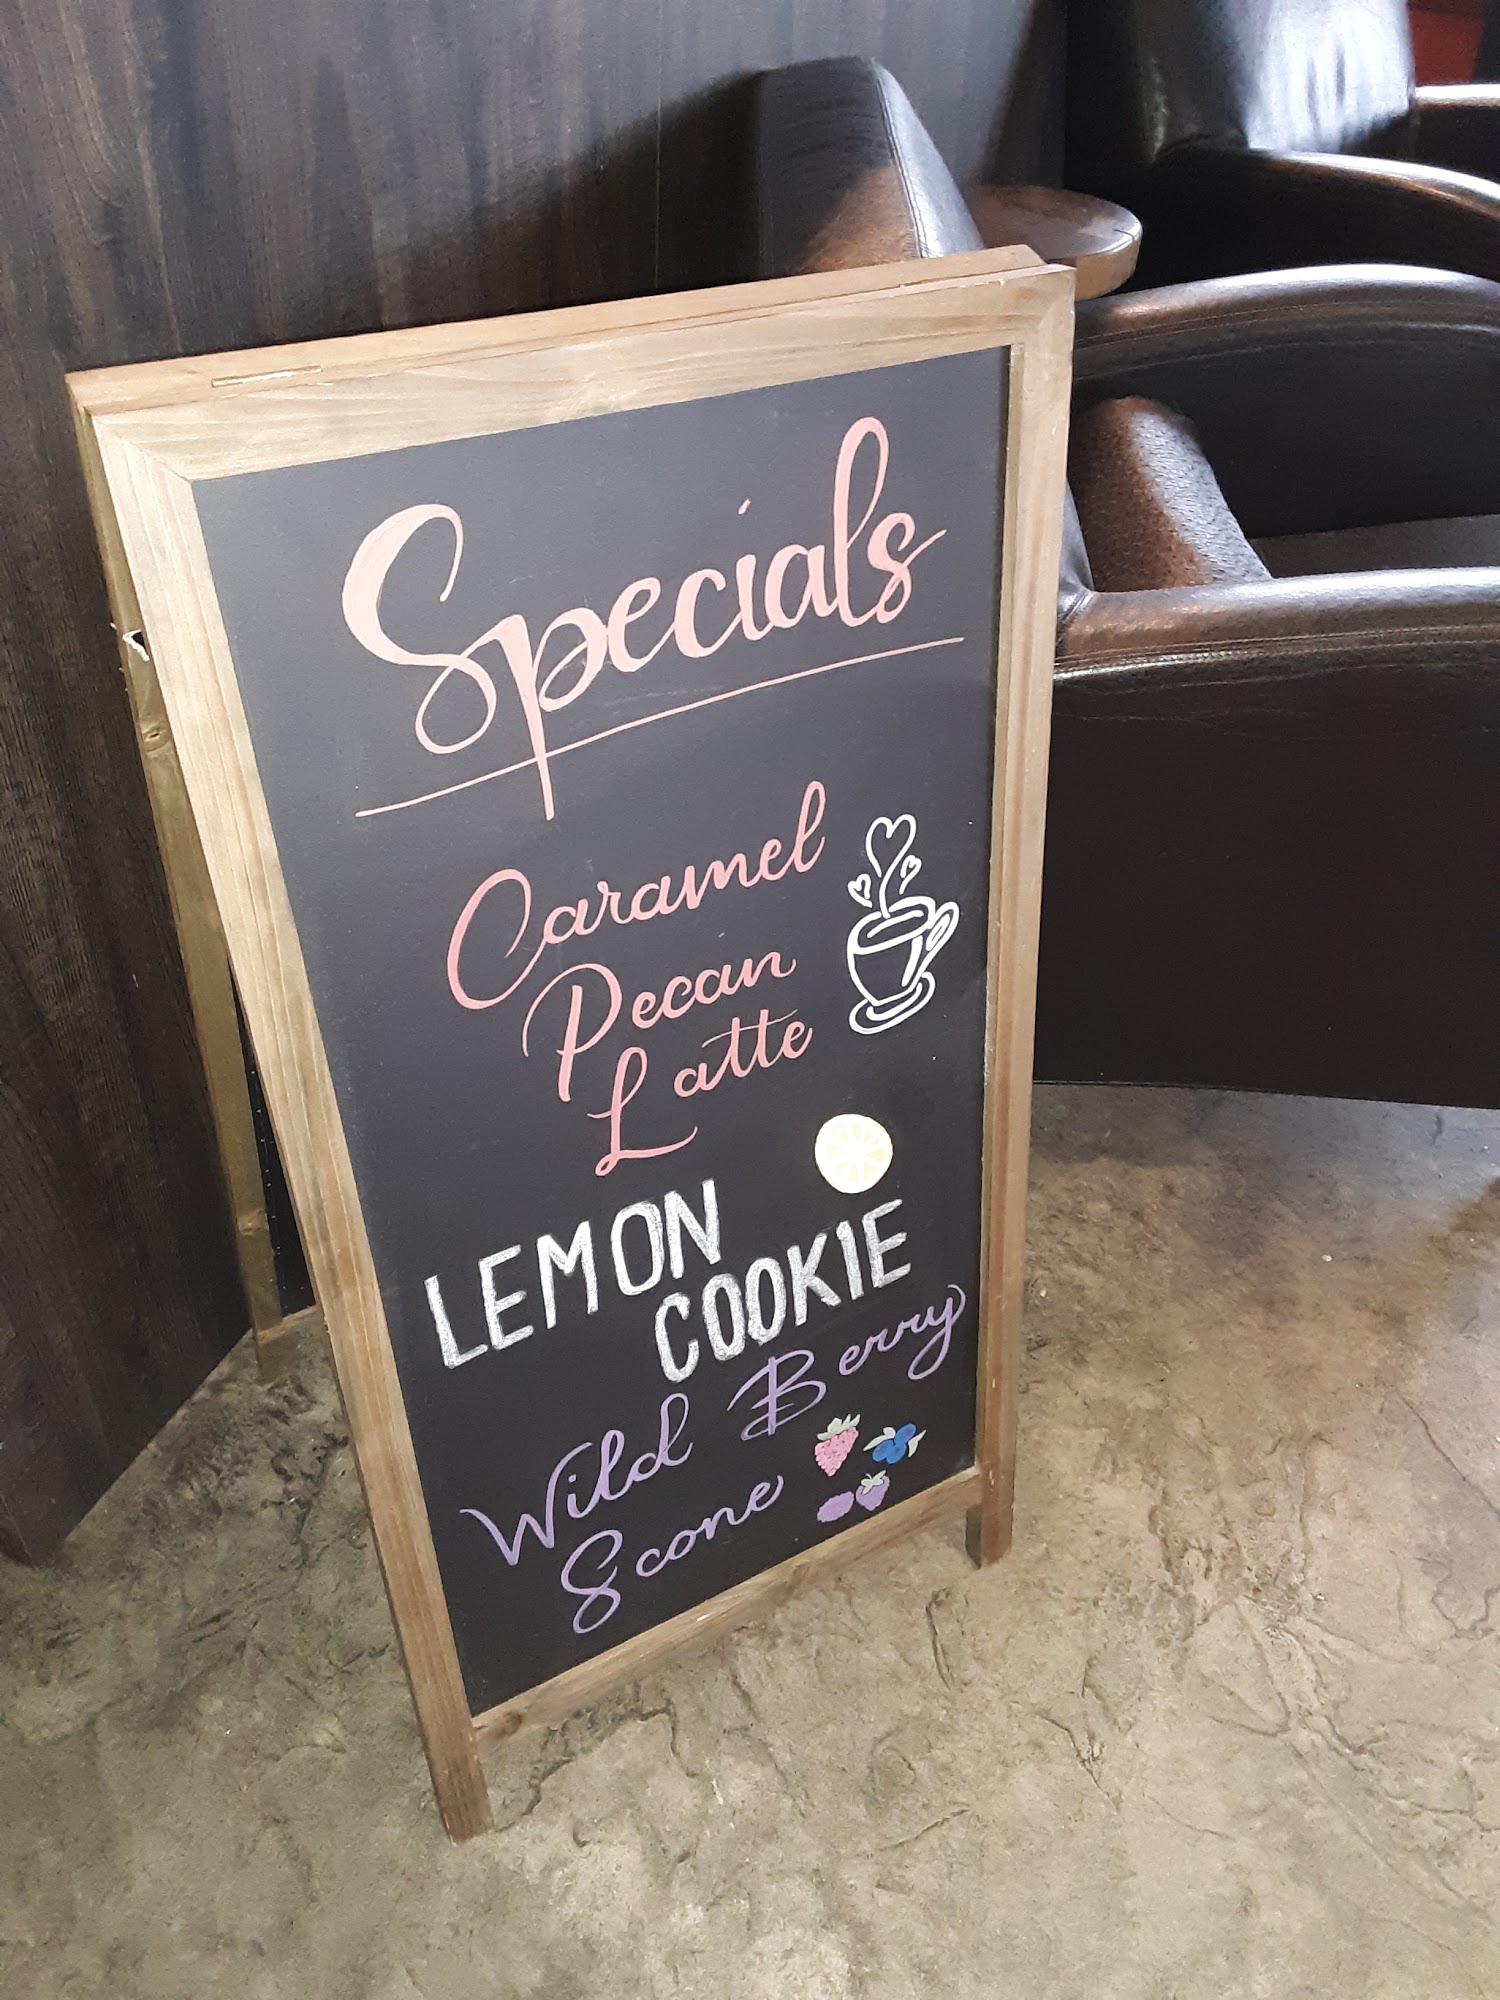 Specials
Caramel
Pecan
Latte
LEMON
COOKIE
Wild Berry
Scone